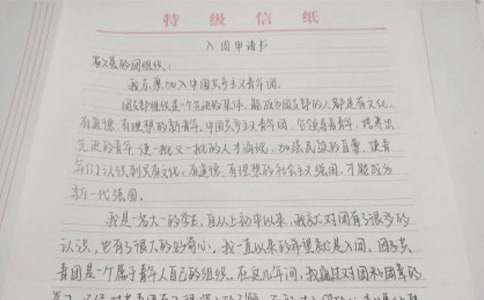 特级信纸
入团申请书
敬爱的团组织：
我志愿加入中国共产主义青年团。
团支部组织是一个先进的集体，能成为团支部的人都是有文化、
有道德、有理想的新青年。中国共产主义青年团，它领导着青年，培养出
先进的青年，使一批又一批的人才涌现，加强民族的力量，使青
年们认识到只有文化、有道德、有理想的社会主义强国，才能成为
新一代强国。
我是一名大一的学生，自从上初中以来，我就对团有了很多的
认识，也有了很大的好奇心。我一直以来的希望就是入团。团员共
青团是一个属于青年人自己的组织。在这几年间，我通过对团和团章的